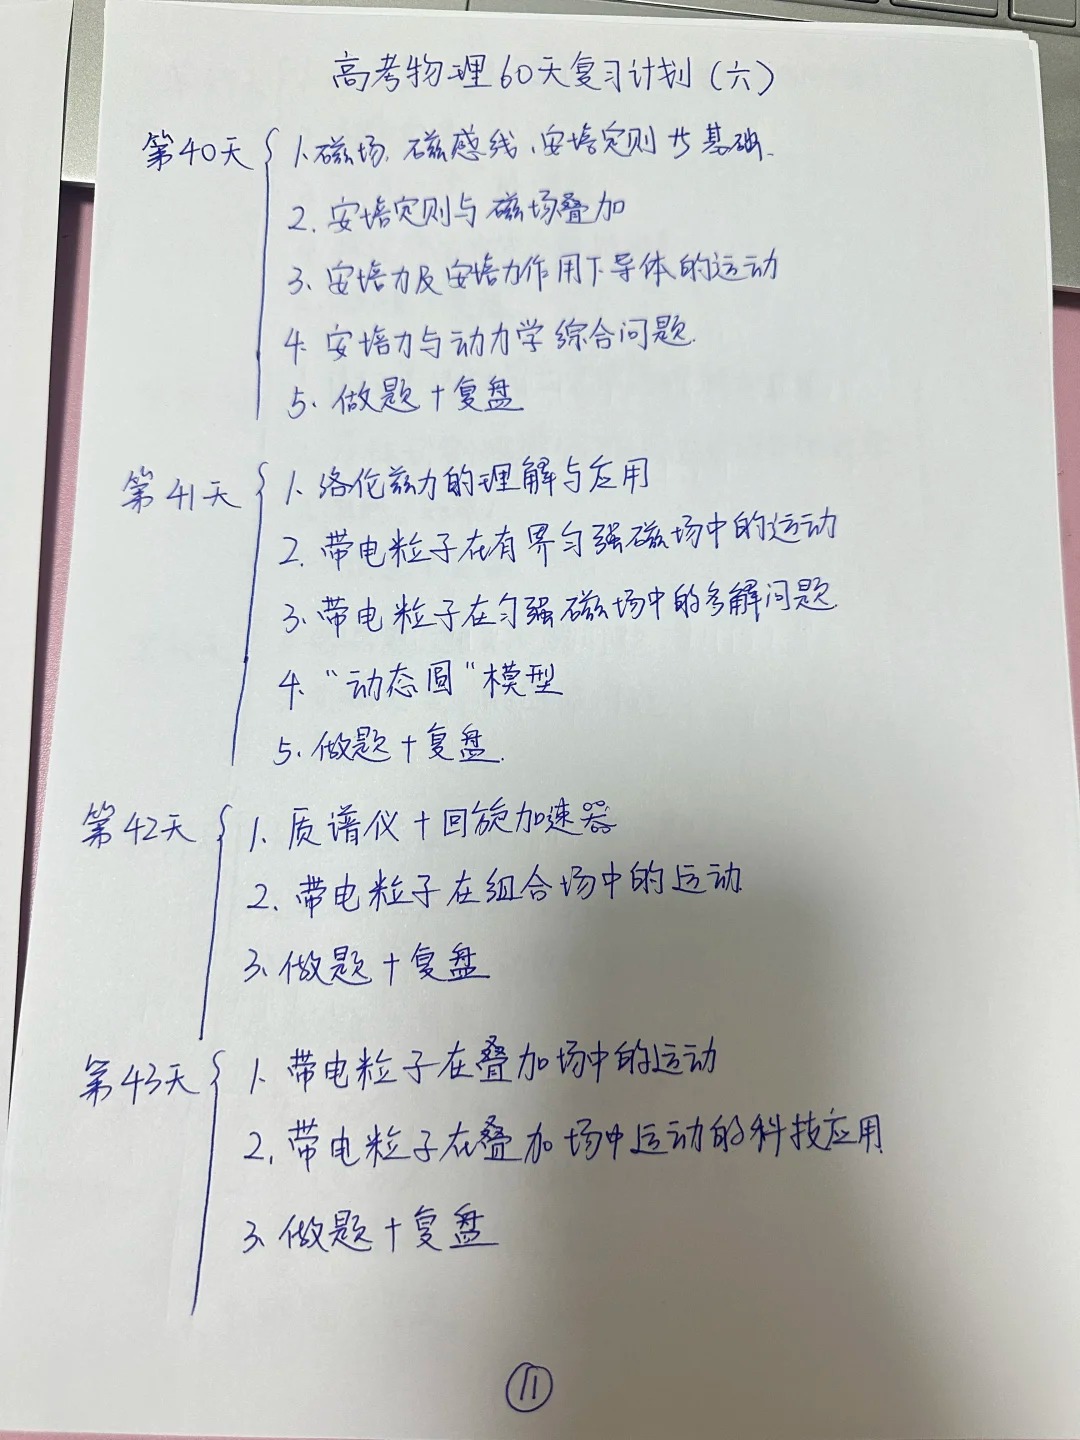 高考物理60天复习计划(六)
第40天 1.磁场、磁感线、安培定则等基础.
2.安培定则与磁场叠加
3、安培力及安培力作用下导体的运动
4、安培力与动力学综合问题.
5、做题+复盘
第41天 1、洛伦兹力的理解与应用
2.带电粒子在有界匀强磁场中的运动
3、带电粒子在匀强磁场中的多解问题
4、“动态圆”模型
5、做题+复盘.
第42天 1、质谱仪+回旋加速器
2、带电粒子在组合场中的运动
3、做题+复盘
第43天 1、带电粒子在叠加场中的运动
2、带电粒子在叠加场中运动的科技应用
3、做题+复盘
11